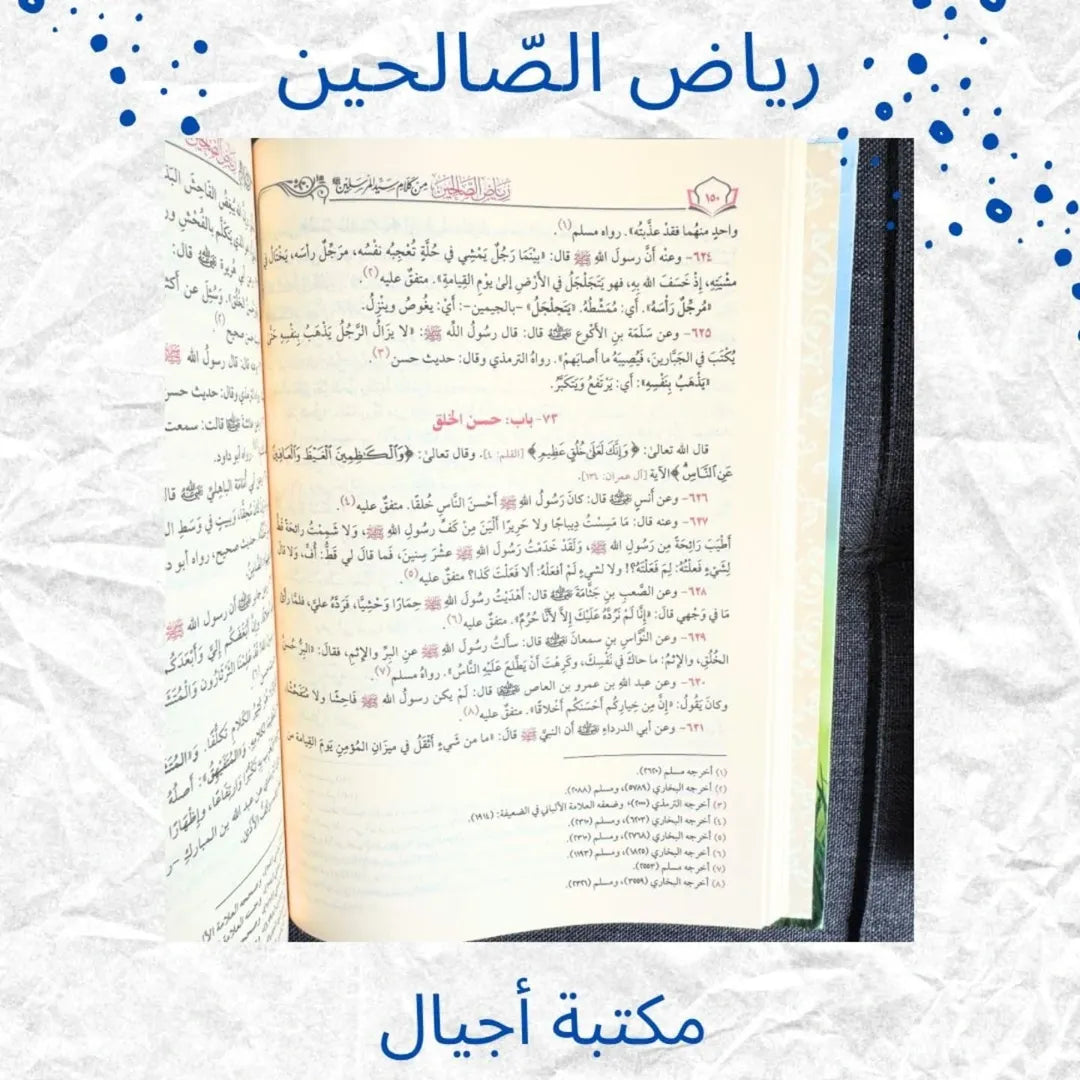 رياض الصّالحين
١٥٠
رياض الصالحين من كلام سيد المرسلين ﷺ
واحدٍ منهُما فقدْ عذَّبتُه». رواه مسلم(١).
٦٢٤- وعنْه أنَّ رسولَ اللهِ ﷺ قال: «بيْنَمَا رَجُلٌ يَمْشِي في حُلَّةٍ تُعْجِبُه نَفْسُه، مرَجِّلٌ رأسَه، يَخْتَالُ في
مِشْيَتِهِ، إذْ خَسَفَ اللهُ بِهِ، فهو يَتَجَلْجَلُ في الأَرْضِ إلىٰ يوْمِ القِيامةِ». متفقٌ عليه(٢).
«مُرجِّلٌ رَأْسَهُ». أي: مُمَشِّطُهُ. «يَتَجلْجَلُ» -بالجيمين-: أيْ: يغُوصُ وينْزِلُ.
٦٢٥- وعن سَلَمَة بنِ الأَكْوع ﷺ قال: قال رسُولُ اللَّه ﷺ: «لا يزَالُ الرَّجُلُ يَذْهَبُ بِنفْسِهِ حَتَّىٰ
يُكْتَبَ في الجَبَّارينَ، فَيُصِيبَهُ ما أَصابَهمْ». رواهُ الترمذي وقال: حديث حسن(٣).
«يَذْهَبُ بِنَفْسِهِ»: أي: يَرْتَفعُ وَيَتَكبَّرُ.
٧٣- باب: حسن الخلق
قال الله تعالىٰ: ﴿وَإِنَّكَ لَعَلَىٰ خُلُقٍ عَظِيمٍ﴾ [القلم: ٤]. وقال تعالىٰ: ﴿وَٱلْكَٰظِمِينَ ٱلْغَيْظَ وَٱلْعَافِينَ
عَنِ ٱلنَّاسِ﴾ الآية [آل عمران: ١٣٤].
٦٢٦- وعن أنسٍ قال: كانَ رَسُولُ اللهِ ﷺ أَحْسنَ النَّاسِ خُلقًا. متفقٌ عليه(٤).
٦٢٧- وعنه قال: مَا مَسِسْتُ دِيباجًا ولا حَرِيرًا أَلْيَنَ مِنْ كَفِّ رسُولِ اللهِ ﷺ، وَلا شَمِمْتُ رائحَةً قَطُّ
أَطْيَبَ رَائحَةً مِن رَسُولِ اللهِ ﷺ، وَلَقَدْ خَدَمْتُ رَسُولَ اللهِ ﷺ عَشْرَ سِنينَ، فَما قالَ لي قَطُّ: أُفٍّ، وَلا قالَ
لِشَيْءٍ فَعلْتُهُ: لِمَ فَعَلْتَهُ؟! ولا لشيءٍ لَمْ أفعَلْهُ: ألا فَعَلْتَ كَذا؟ متفقٌ عليه(٥).
٦٢٨- وعن الصَّعبِ بنِ جَثَّامَةَ قالَ: أَهْدَيْتُ رسُولَ اللهِ ﷺ حِمَارًا وَحْشِيًّا، فَرَدَّهُ عليَّ، فلمَّا رَأىٰ
مَا في وَجْهي قالَ: «إِنَّا لَمْ نَرُدَّهُ عَلَيْكَ إِلاَّ لأَنَّا حُرُمٌ». متفقٌ عليه(٦).
٦٢٩- وعن النَّوَّاسِ بنِ سمعانَ قال: سأَلتُ رسُولَ اللهِ ﷺ عنِ البِرِّ والإثمِ، فقالَ: «البِرُّ حُسنُ
الخُلُقِ، والإثمُ: ما حاكَ في نَفْسِكَ، وكَرِهْتَ أَنْ يَطَّلعَ عَلَيْهِ النَّاسُ». رواهُ مسلم(٧).
٦٣٠- وعن عبد الله بن عمرو بن العاص قال: لَمْ يكن رسولُ اللهِ ﷺ فَاحِشًا ولا مُتَفَحِّشًا،
وكانَ يَقُولُ: «إِنَّ مِن خِيارِكُم أَحْسَنَكُم أَخْلاقًا». متفقٌ عليه(٨).
٦٣١- وعن أبي الدرداءِ أن النبيَّ ﷺ قالَ: «ما من شَيءٍ أَثْقَلُ في ميزَانِ المُؤمِنِ يَومَ القِيامة من
(١) أخرجه مسلم (٢٦٢٠).
(٢) أخرجه البخاري (٥٧٨٩)، ومسلم (٢٠٨٨).
(٣) أخرجه الترمذي (٢٠٠٠)، وضعفه العلامة الألباني في الضعيفة: (١٩١٤).
(٤) أخرجه البخاري (٦٢٠٣)، ومسلم (٢٣١٠).
(٥) أخرجه البخاري (٢٧٦٨)، ومسلم (٢٣١٠).
(٦) أخرجه البخاري (١٨٢٥)، ومسلم (١١٩٣).
(٧) أخرجه مسلم (٢٥٥٣).
(٨) أخرجه البخاري (٣٥٥٩)، ومسلم (٢٣٢١).
مكتبة أجيال